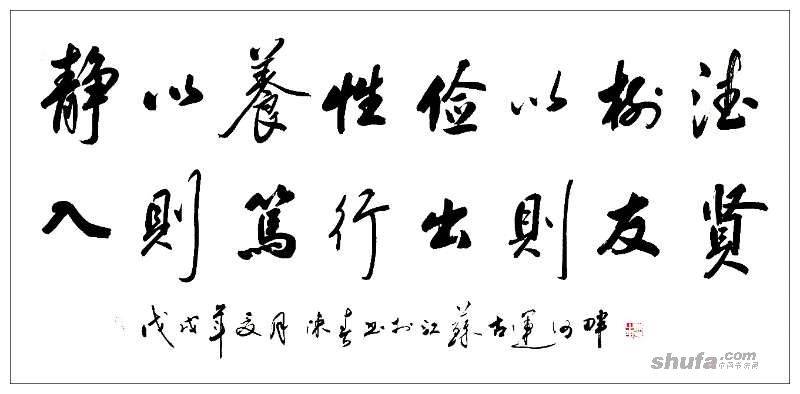 静以養性俭以樹德
入則篤行出則友贤
戊戌年夏月陳春书於江蘇古運河畔
shufa.com
中国书法网